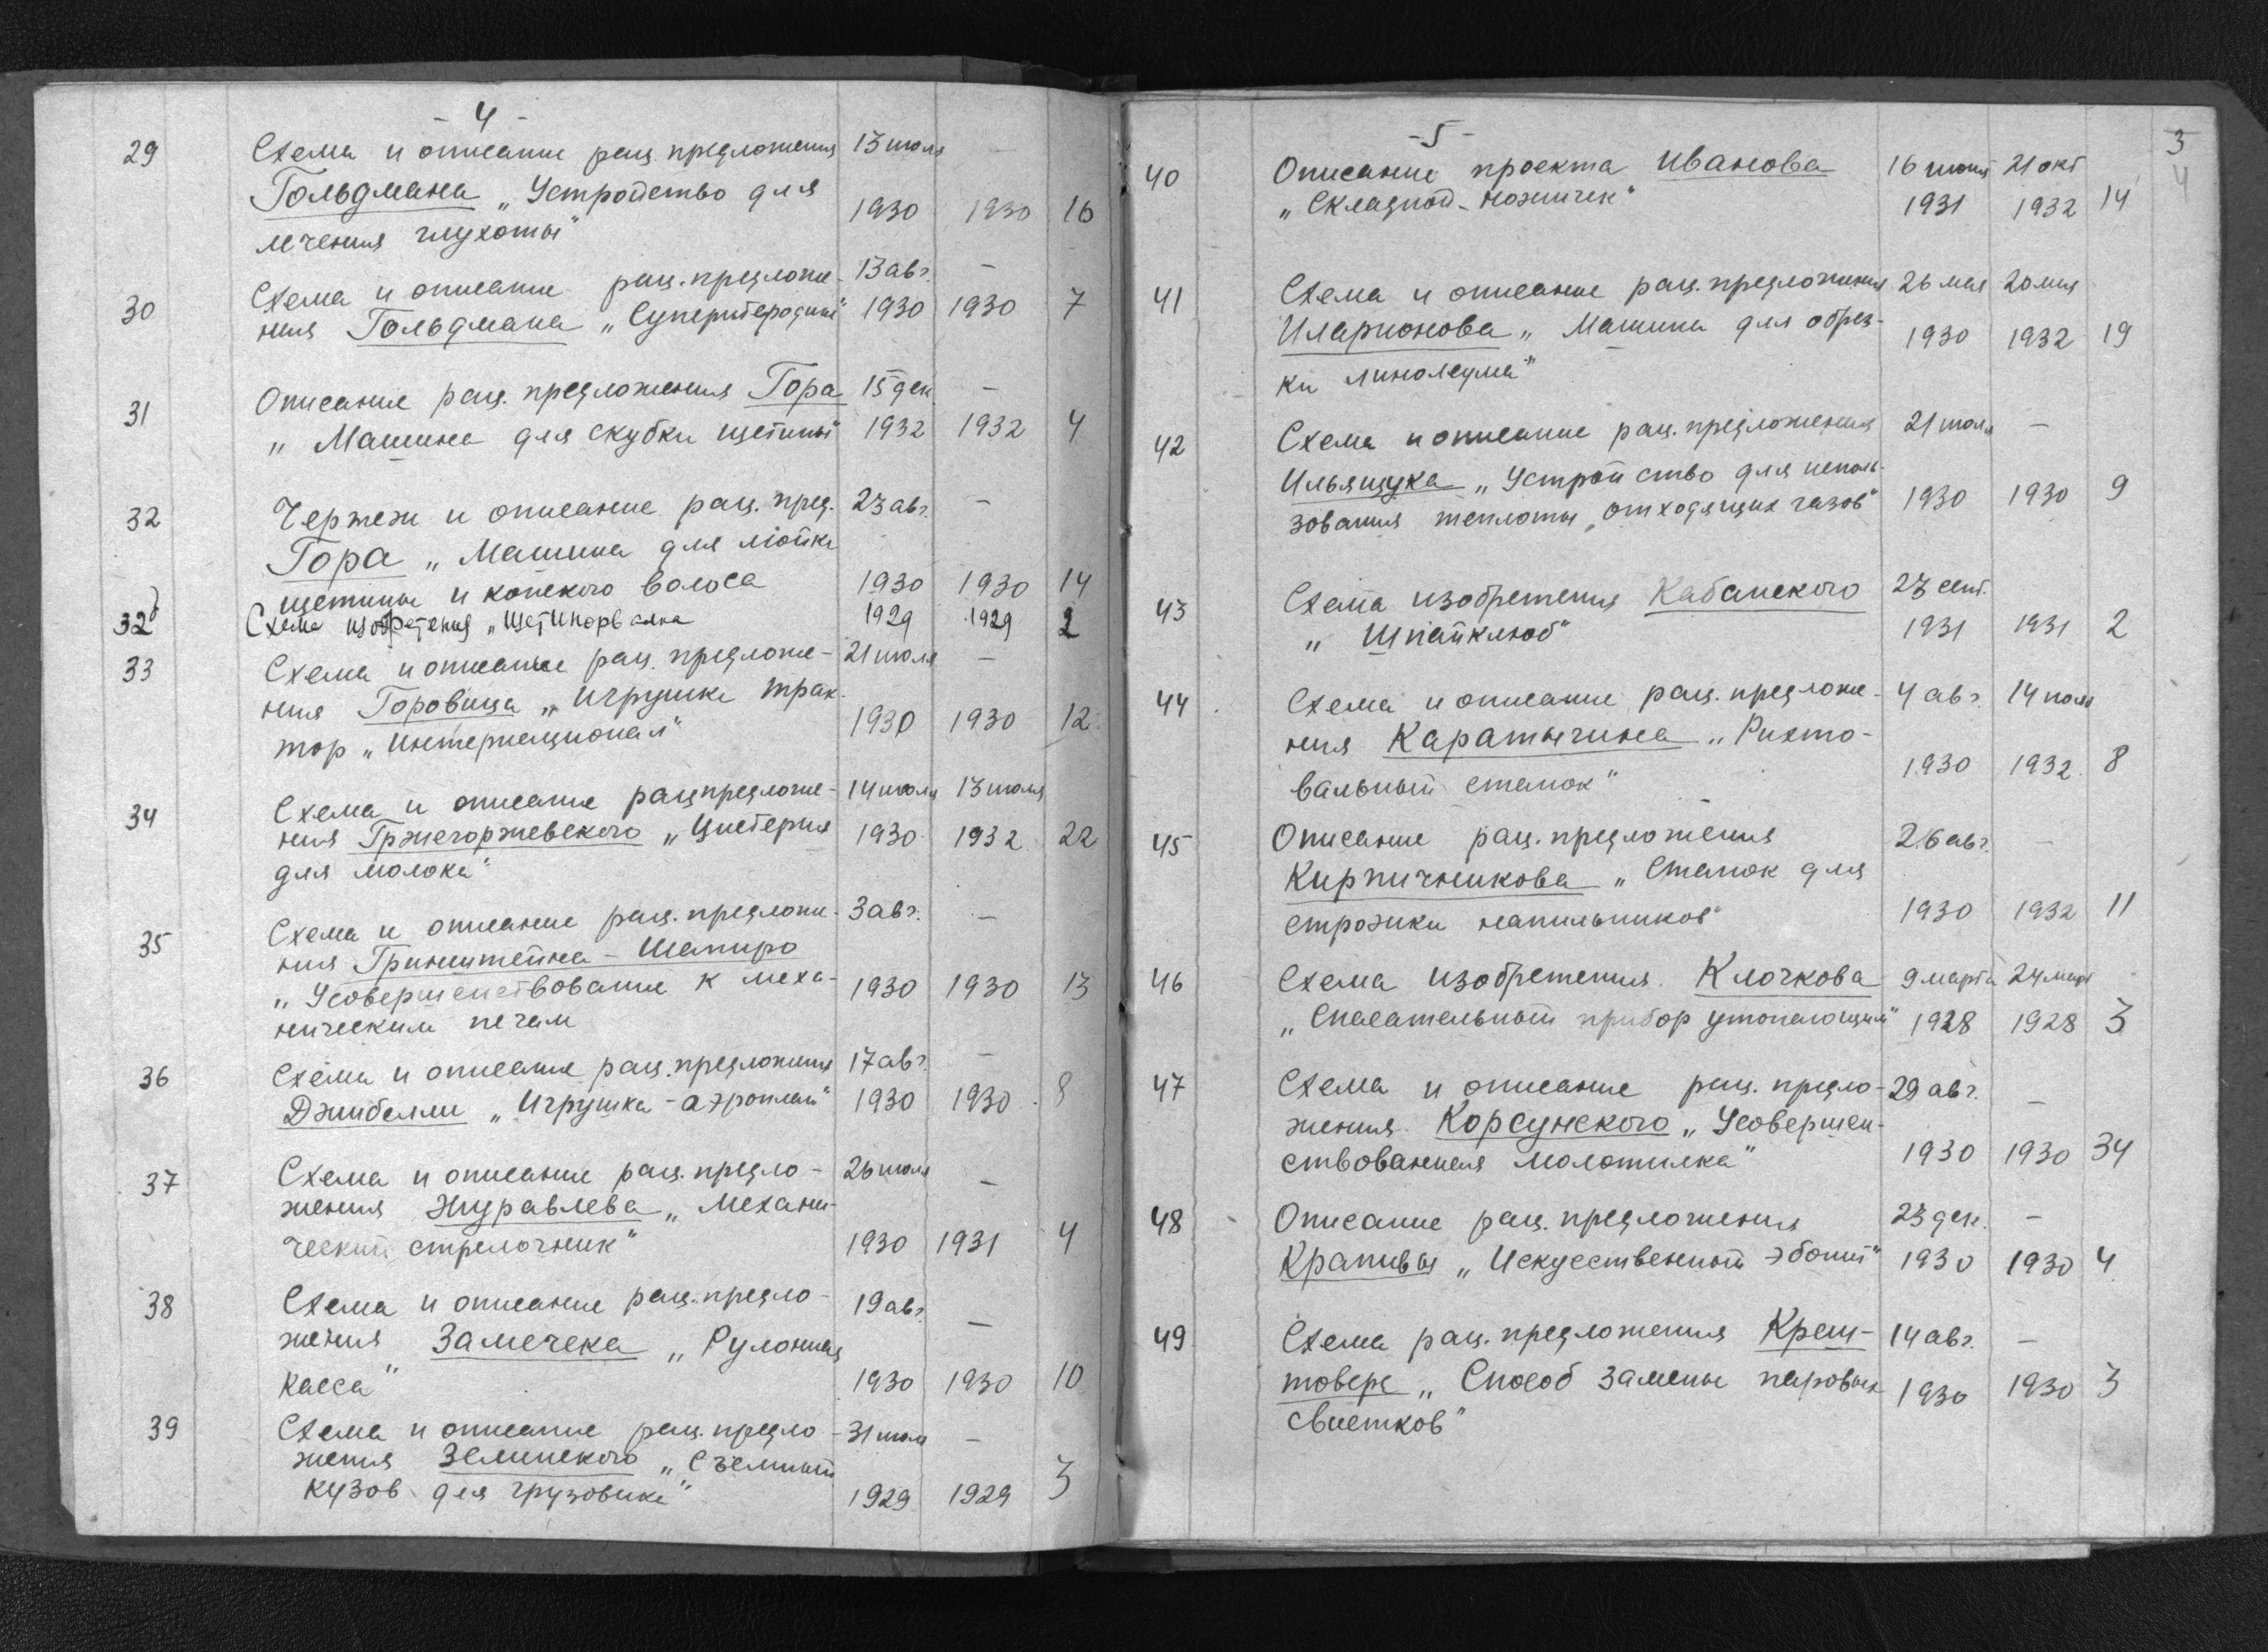 - 4 -
29 Схема и описание рац. предложения 13 июля -
Гольдмана „Устройство для 1930 1930 16
лечения глухоты"
30 Схема и описание рац. предложе- 13 авг. -
ния Гольдмана „Супергетеродин" 1930 1930 7
31 Описание рац. предложения Гора 15 дек. -
„Машина для скубки щетины" 1932 1932 4
32 Чертеж и описание рац. пред. 23 авг. -
Гора „Машина для мойки
щетины и конского волоса 1930 1930 14
32б Схема изобретения „Щетинорвалка 1929 1929 2
33 Схема и описание рац. предложе- 21 июля -
ния Горовица „Игрушка трак-
тор „Интернационал" 1930 1930 12
34 Схема и описание рацпредложе- 14 июля 13 июля
ния Гржегоржевского „Цистерна 1930 1932 22
для молока"
35 Схема и описание рац. предложе- 3 авг. -
ния Гринштейна - Шапиро
„Усовершенствование к меха- 1930 1930 13
ническим печам
36 Схема и описание рац. предложения 17 авг. -
Джибелли „Игрушка - аэроплан" 1930 1930 8
37 Схема и описание рац. предло- 26 июля -
жения Журавлева „Механи-
ческий стрелочник" 1930 1931 4
38 Схема и описание рац. предло- 19 авг. -
жения Замечека „Рулонная
касса" 1930 1930 10
39 Схема и описание рац. предло- 31 июля -
жения Зелинского „Съемный
кузов для грузовика" 1929 1929 3
- 5 -
3
4
40 Описание проекта Иванова 16 июня 21 окт
„Складной - ножичек" 1931 1932 14
41 Схема и описание рац. предложения 26 мая 20 мая
Иларионова „Машина для обрез- 1930 1932 19
ки линолеума"
42 Схема и описание рац. предложения 21 июля -
Ильящука „Устройство для исполь-
зования теплоты отходящих газов" 1930 1930 9
43 Схема изобретения Кабанского 27 сент.
„Шпайклюб" 1931 1931 2
44 Схема и описание рац. предложе- 4 авг. 14 июля
ния Каратыгина „Рихто-
вальный станок" 1930 1932 8
45 Описание рац. предложения 26 авг. -
Кирпичникова „Станок для
строжки напильников" 1930 1932 11
46 Схема изобретения Клочкова 9 марта 24 мая
„Спасательный прибор утопающим" 1928 1928 3
47 Схема и описание рац. предло- 29 авг. -
жения Корсунского „Усовершен-
ствованная молотилка" 1930 1930 34
48 Описание рац. предложения 23 дек. -
Крапивы „Искусственный эбонит" 1930 1930 4
49 Схема рац. предложения Крец- 14 авг. -
товера „Способ замены паровых 1930 1930 3
свистков"